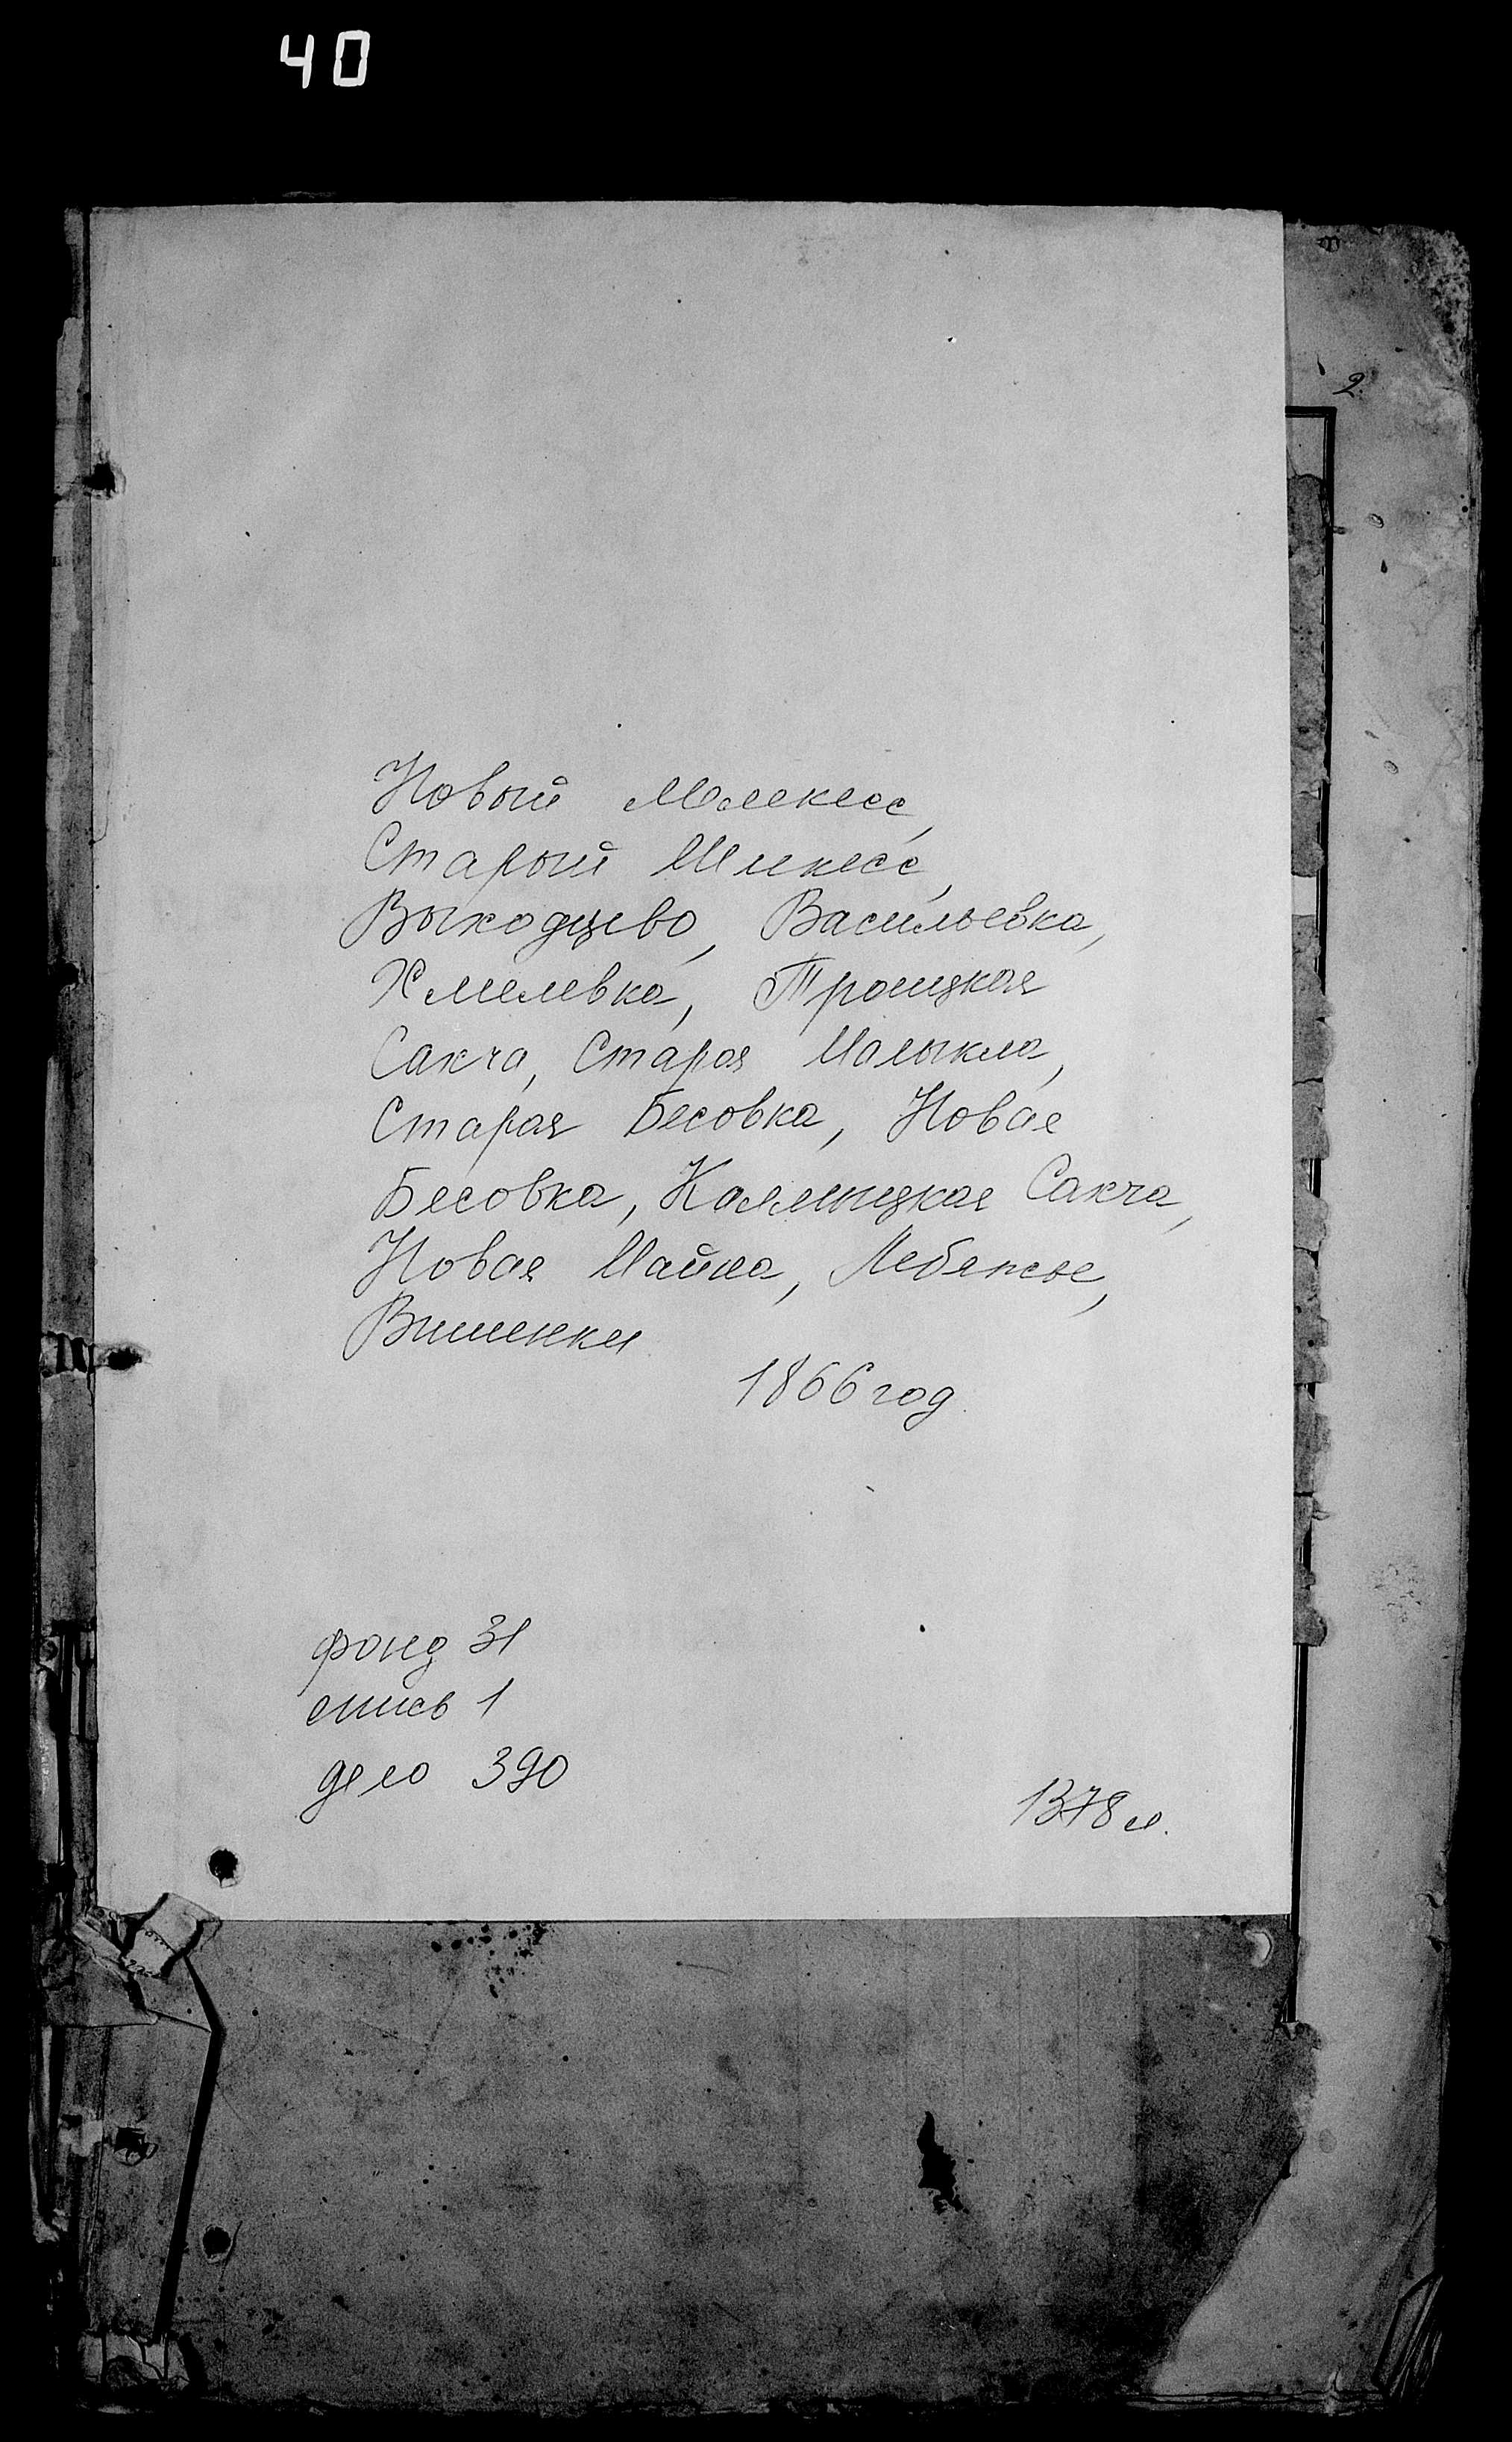 40
2.
Новый Мелекесс,
Старый Мелекесс,
Выходцево, Васильевка,
Хмелевка, Троицкая
Сакча, Старая Малыкла,
Старая Бесовка, Новая
Бесовка, Калмыцкая Сакча,
Новая Майна, Лебяжье,
Вишенки
1866 год.
фонд 31
опись 1
дело 390
1378 л.